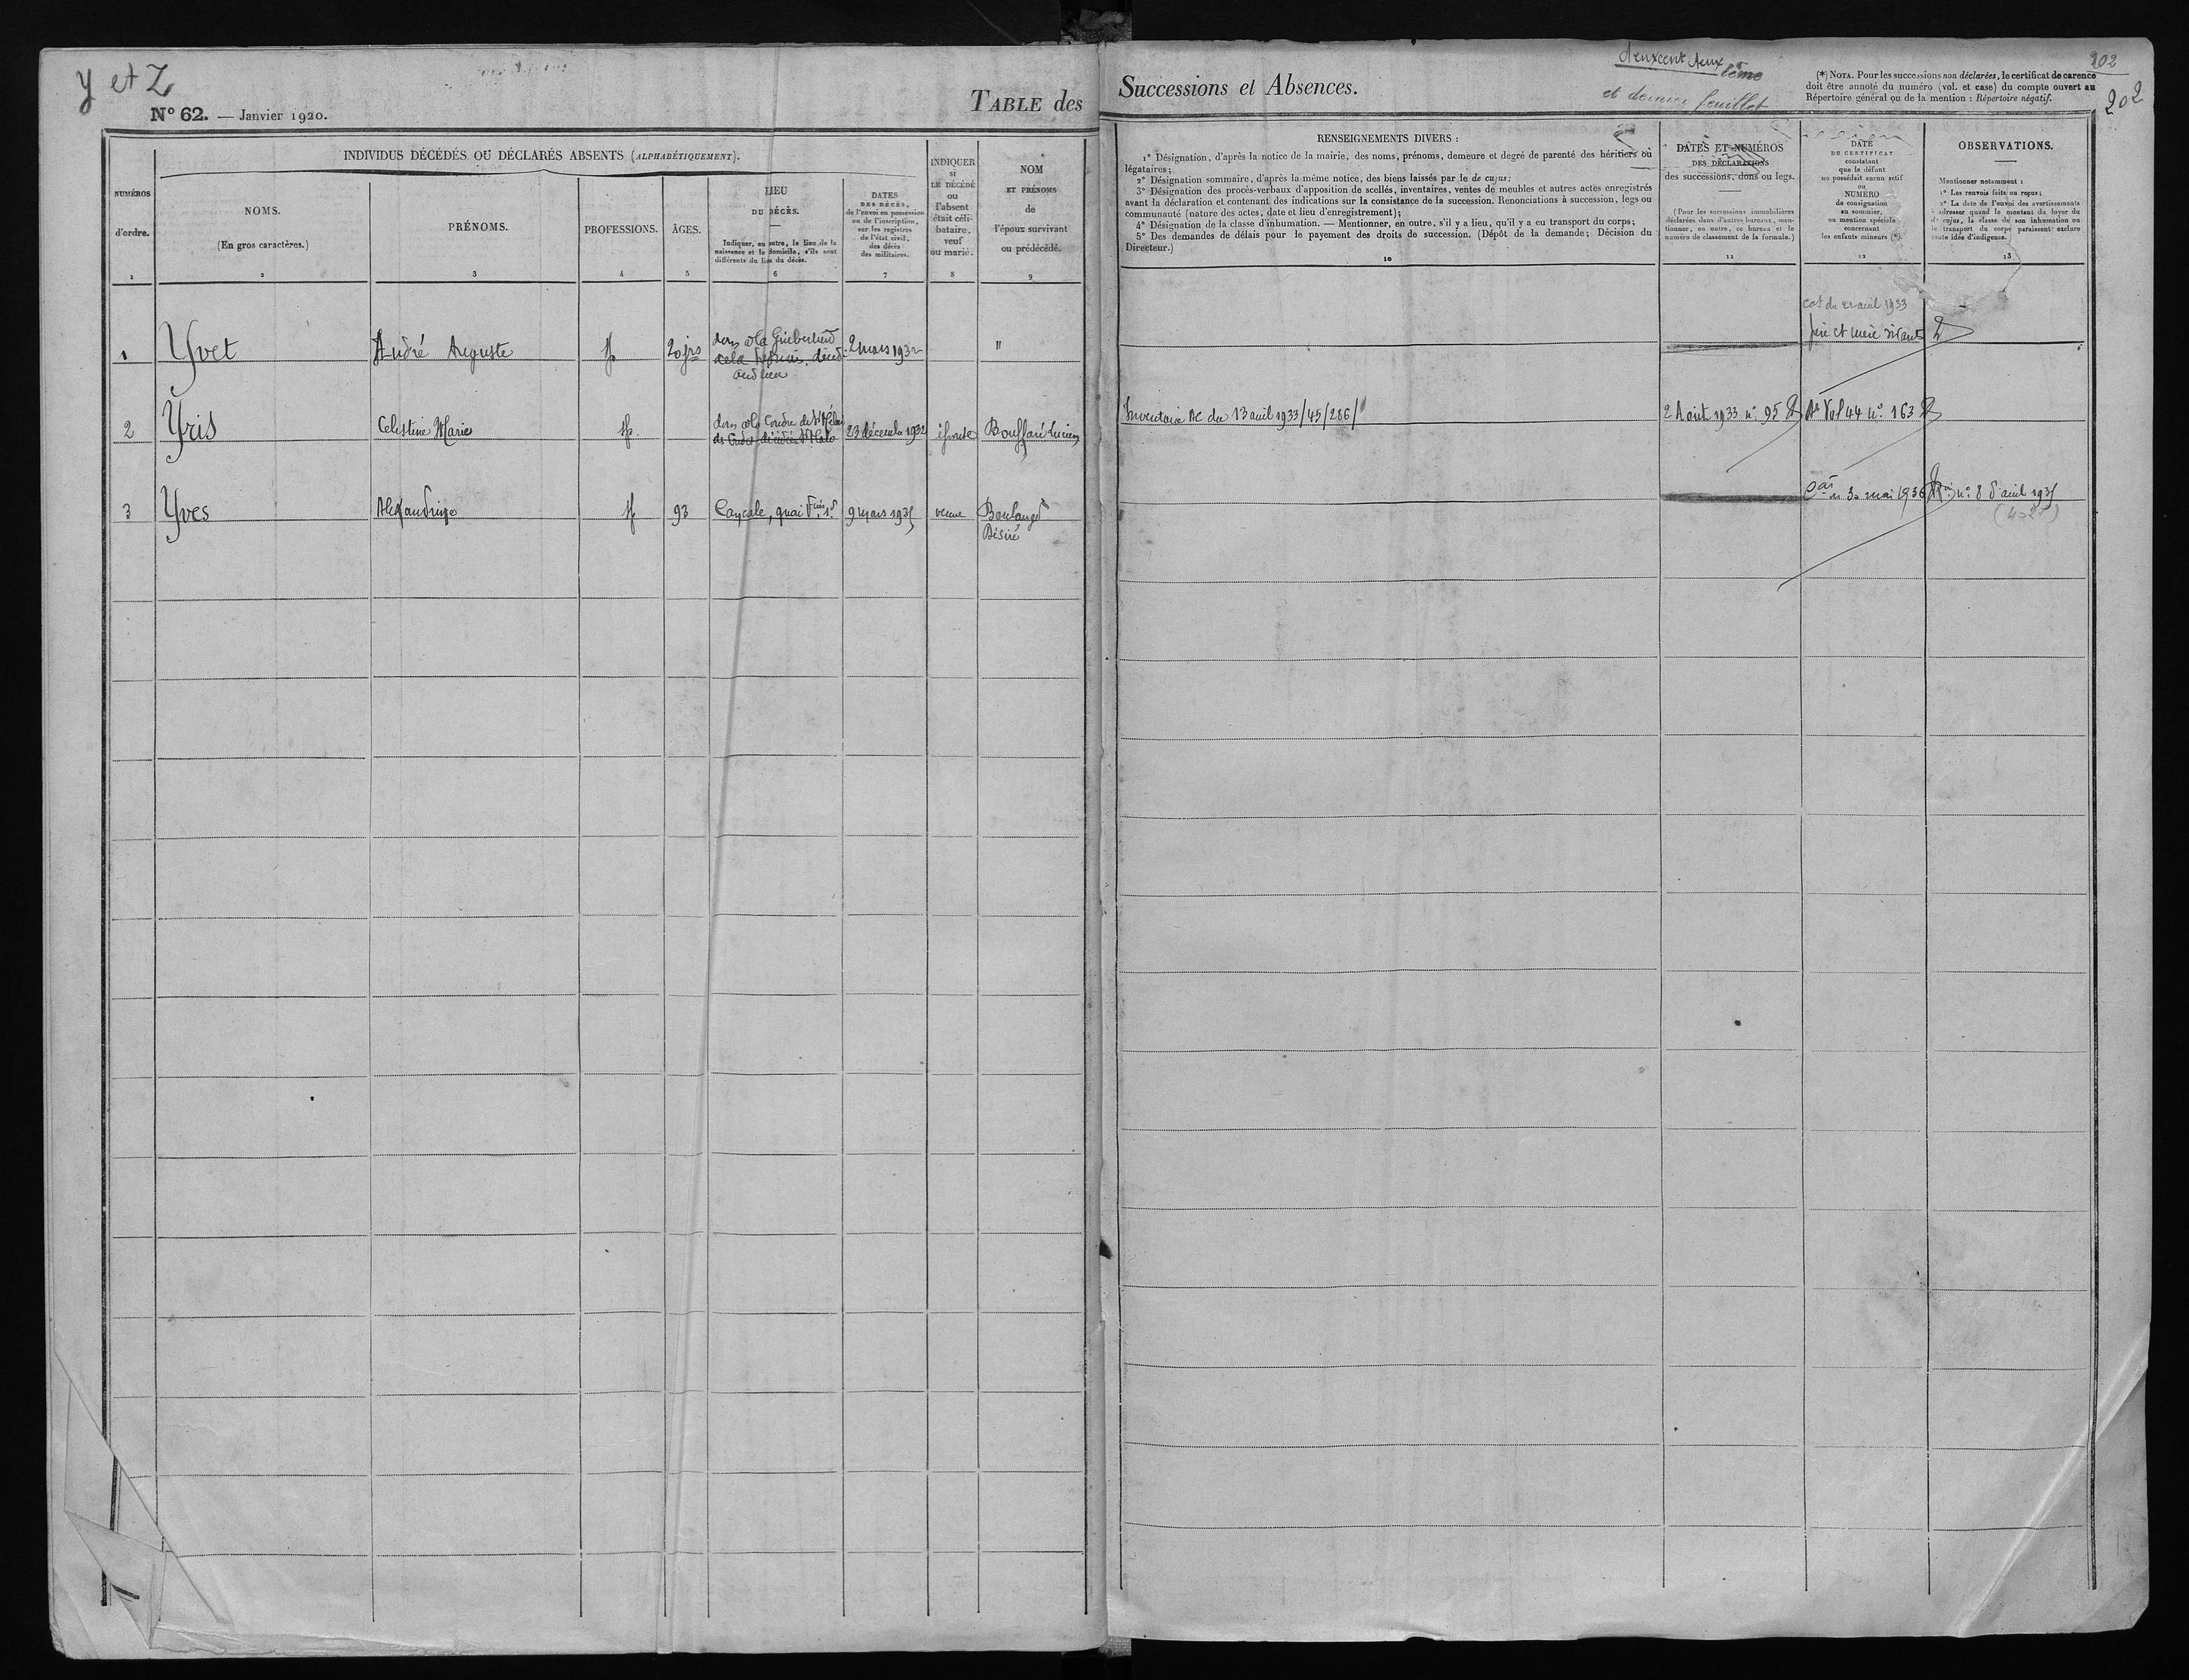 Y et Z
N° 62. — Janvier 1920.
TABLE des
Successions et Absences.
deuxcent deux
ième
et dernier feuillet
(*) NOTA. Pour les successions non déclarées, le certificat de carence
doit être annoté du numéro (vol. et case) du compte ouvert au
Répertoire général ou de la mention : Répertoire négatif.
202
202
NUMÉROS
d'ordre.
1
INDIVIDUS DÉCÉDÉS OU DÉCLARÉS ABSENTS (ALPHABÉTIQUEMENT).
NOMS.
(En gros caractères.)
2
PRÉNOMS.
3
PROFESSIONS.
4
ÂGES.
5
LIEU
DU DÉCÈS.
Indiquer, en outre, le lieu de la
naissance et le domicile, s'ils sont
différents du lieu du décès.
6
DATES
DES DÉCÈS,
de l'envoi en possession
ou de l'inscription,
sur les registres
de l'état civil,
des décès
des militaires.
7
INDIQUER
SI
LE DÉCÉDÉ
ou
l'absent
était céli-
bataire,
veuf
ou marié.
8
NOM
ET PRÉNOMS
de
l'époux survivant
ou prédécédé.
9
RENSEIGNEMENTS DIVERS :
1° Désignation, d'après la notice de la mairie, des noms, prénoms, demeure et degré de parenté des héritiers ou
légataires;
2° Désignation sommaire, d'après la même notice, des biens laissés par le de cujus;
3° Désignation des procès-verbaux d'apposition de scellés, inventaires, ventes de meubles et autres actes enregistrés
avant la déclaration et contenant des indications sur la consistance de la succession. Renonciations à succession, legs ou
communauté (nature des actes, date et lieu d'enregistrement);
4° Désignation de la classe d'inhumation. — Mentionner, en outre, s'il y a lieu, qu'il y a eu transport du corps;
5° Des demandes de délais pour le payement des droits de succession. (Dépôt de la demande; Décision du
Directeur.)
10
DATES ET NUMÉROS
DES DÉCLARATIONS
des successions, dons ou legs.
(Pour les successions immobilières
déclarées dans d'autres bureaux, men-
tionner, en outre, ce bureau et le
numéro de classement de la formule.)
11
DATE
DU CERTIFICAT
constatant
que le défunt
ne possédait aucun actif
ou
NUMÉRO
de consignation
au sommier,
ou mention spéciale
concernant
les enfants mineurs (*).
12
OBSERVATIONS.
Mentionner notamment :
1° Les renvois faits ou reçus;
2° La date de l'envoi des avertissements
à adresser quand le montant du loyer du
de cujus, la classe de son inhumation ou
le transport du corps paraissent exclure
toute idée d'indigence.
13
1 Yvet André Auguste 20 jrs 2 mars 1932 "
père et mère vivants
2 Yris Celestine Marie sp. 23 décembre 1932 épouse Bouffaré Lucien
Inventaire AC du 13 avril 1933/45/286/ 2 Août 1933 n° 95 Vol 44 n° 163
3 Yves Alexandrine 93 Cancale, quai 9 mars 1935 veuve Boulanger
Désiré
30 mai 1936 n° 8 d'avril 1935